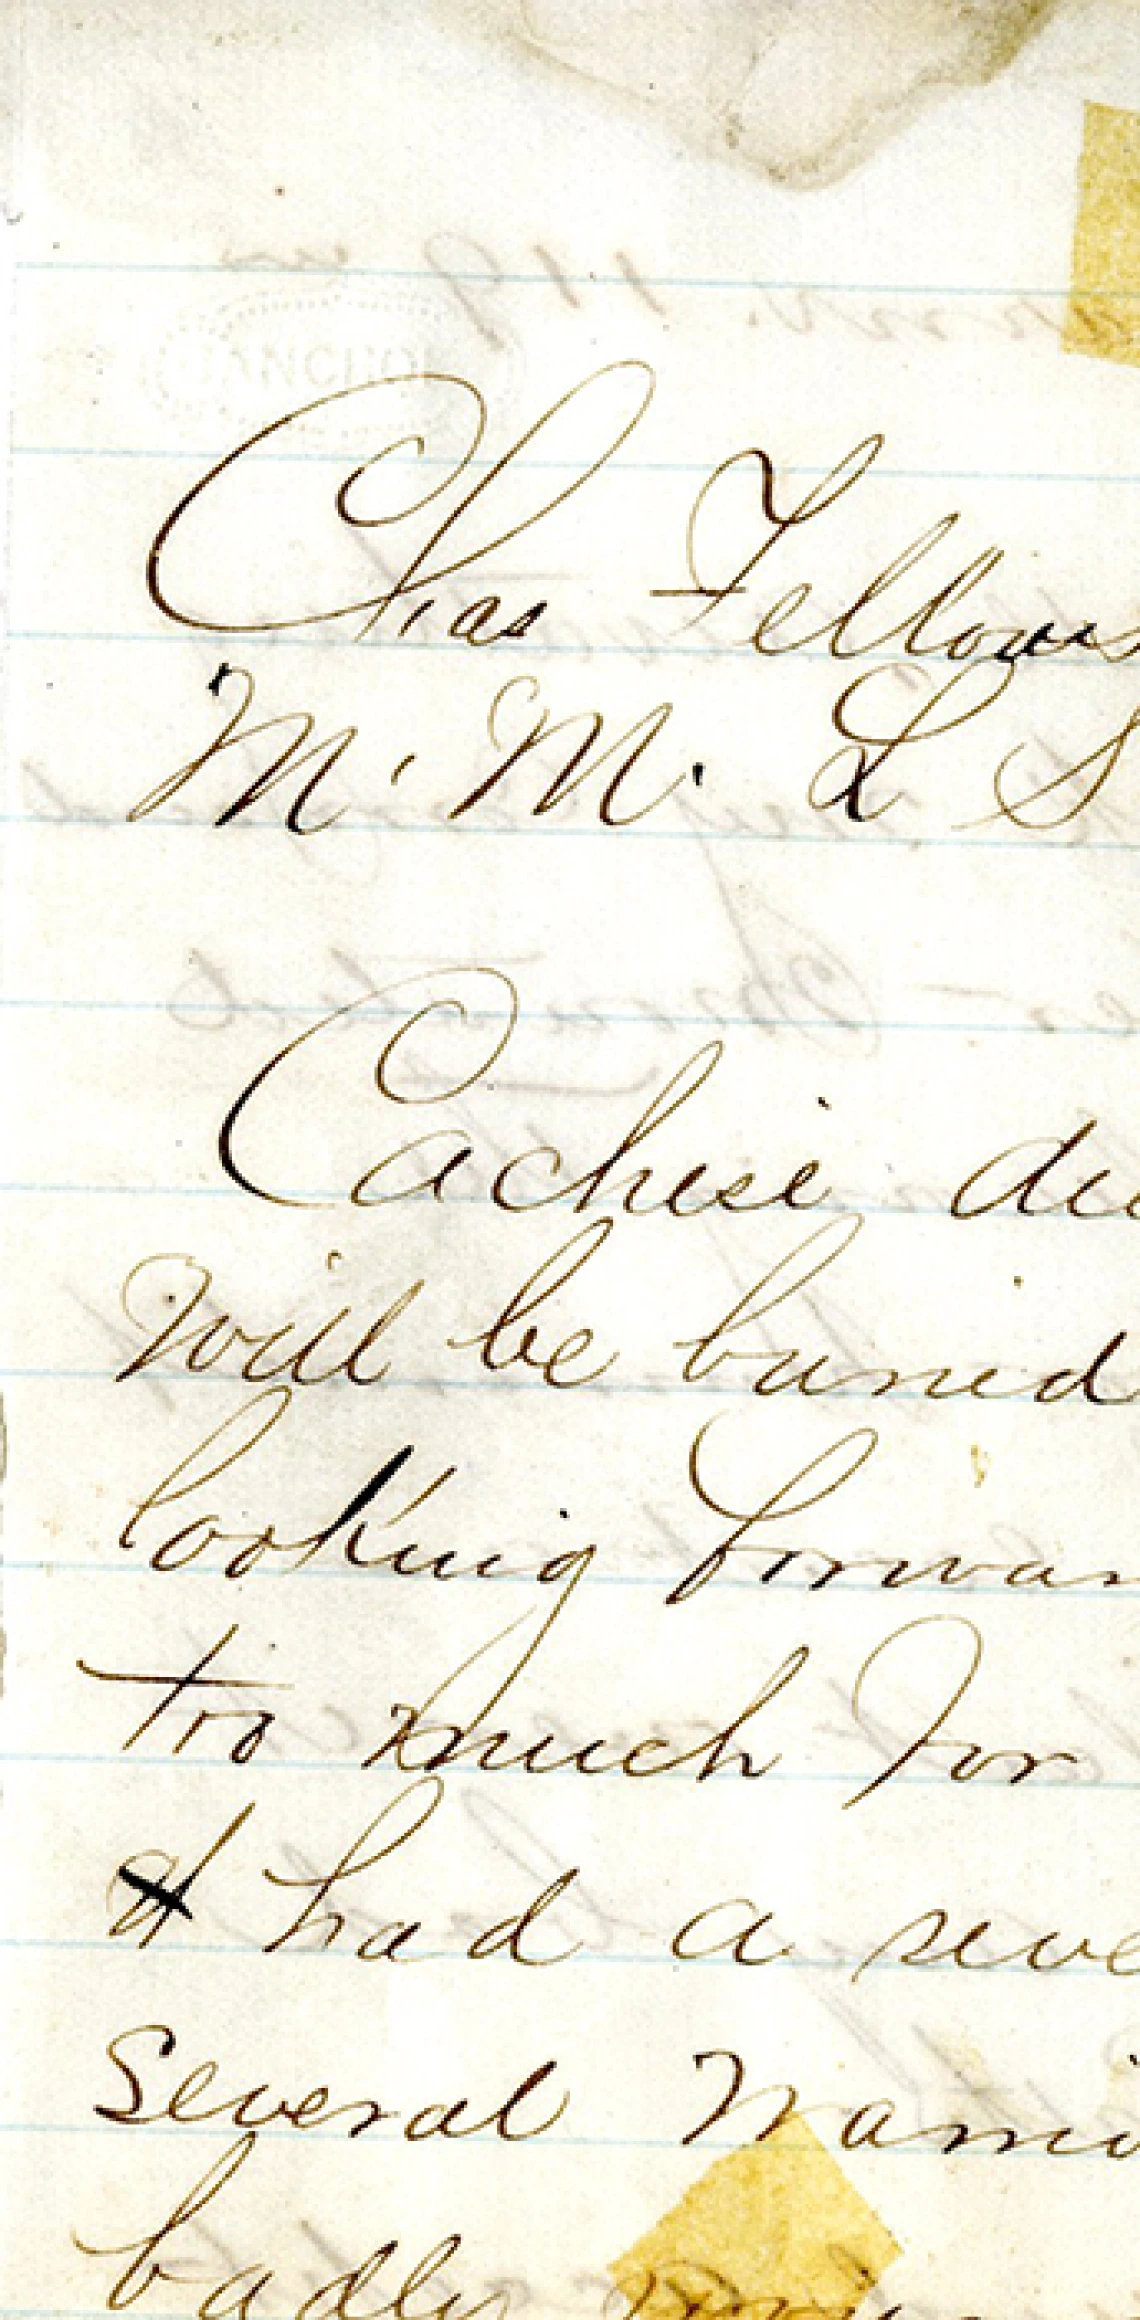 Chas Fellows
M. M. L S
Cachise die
will be buried
looking forwar
too much for
& had a seve
Several Warri
badly